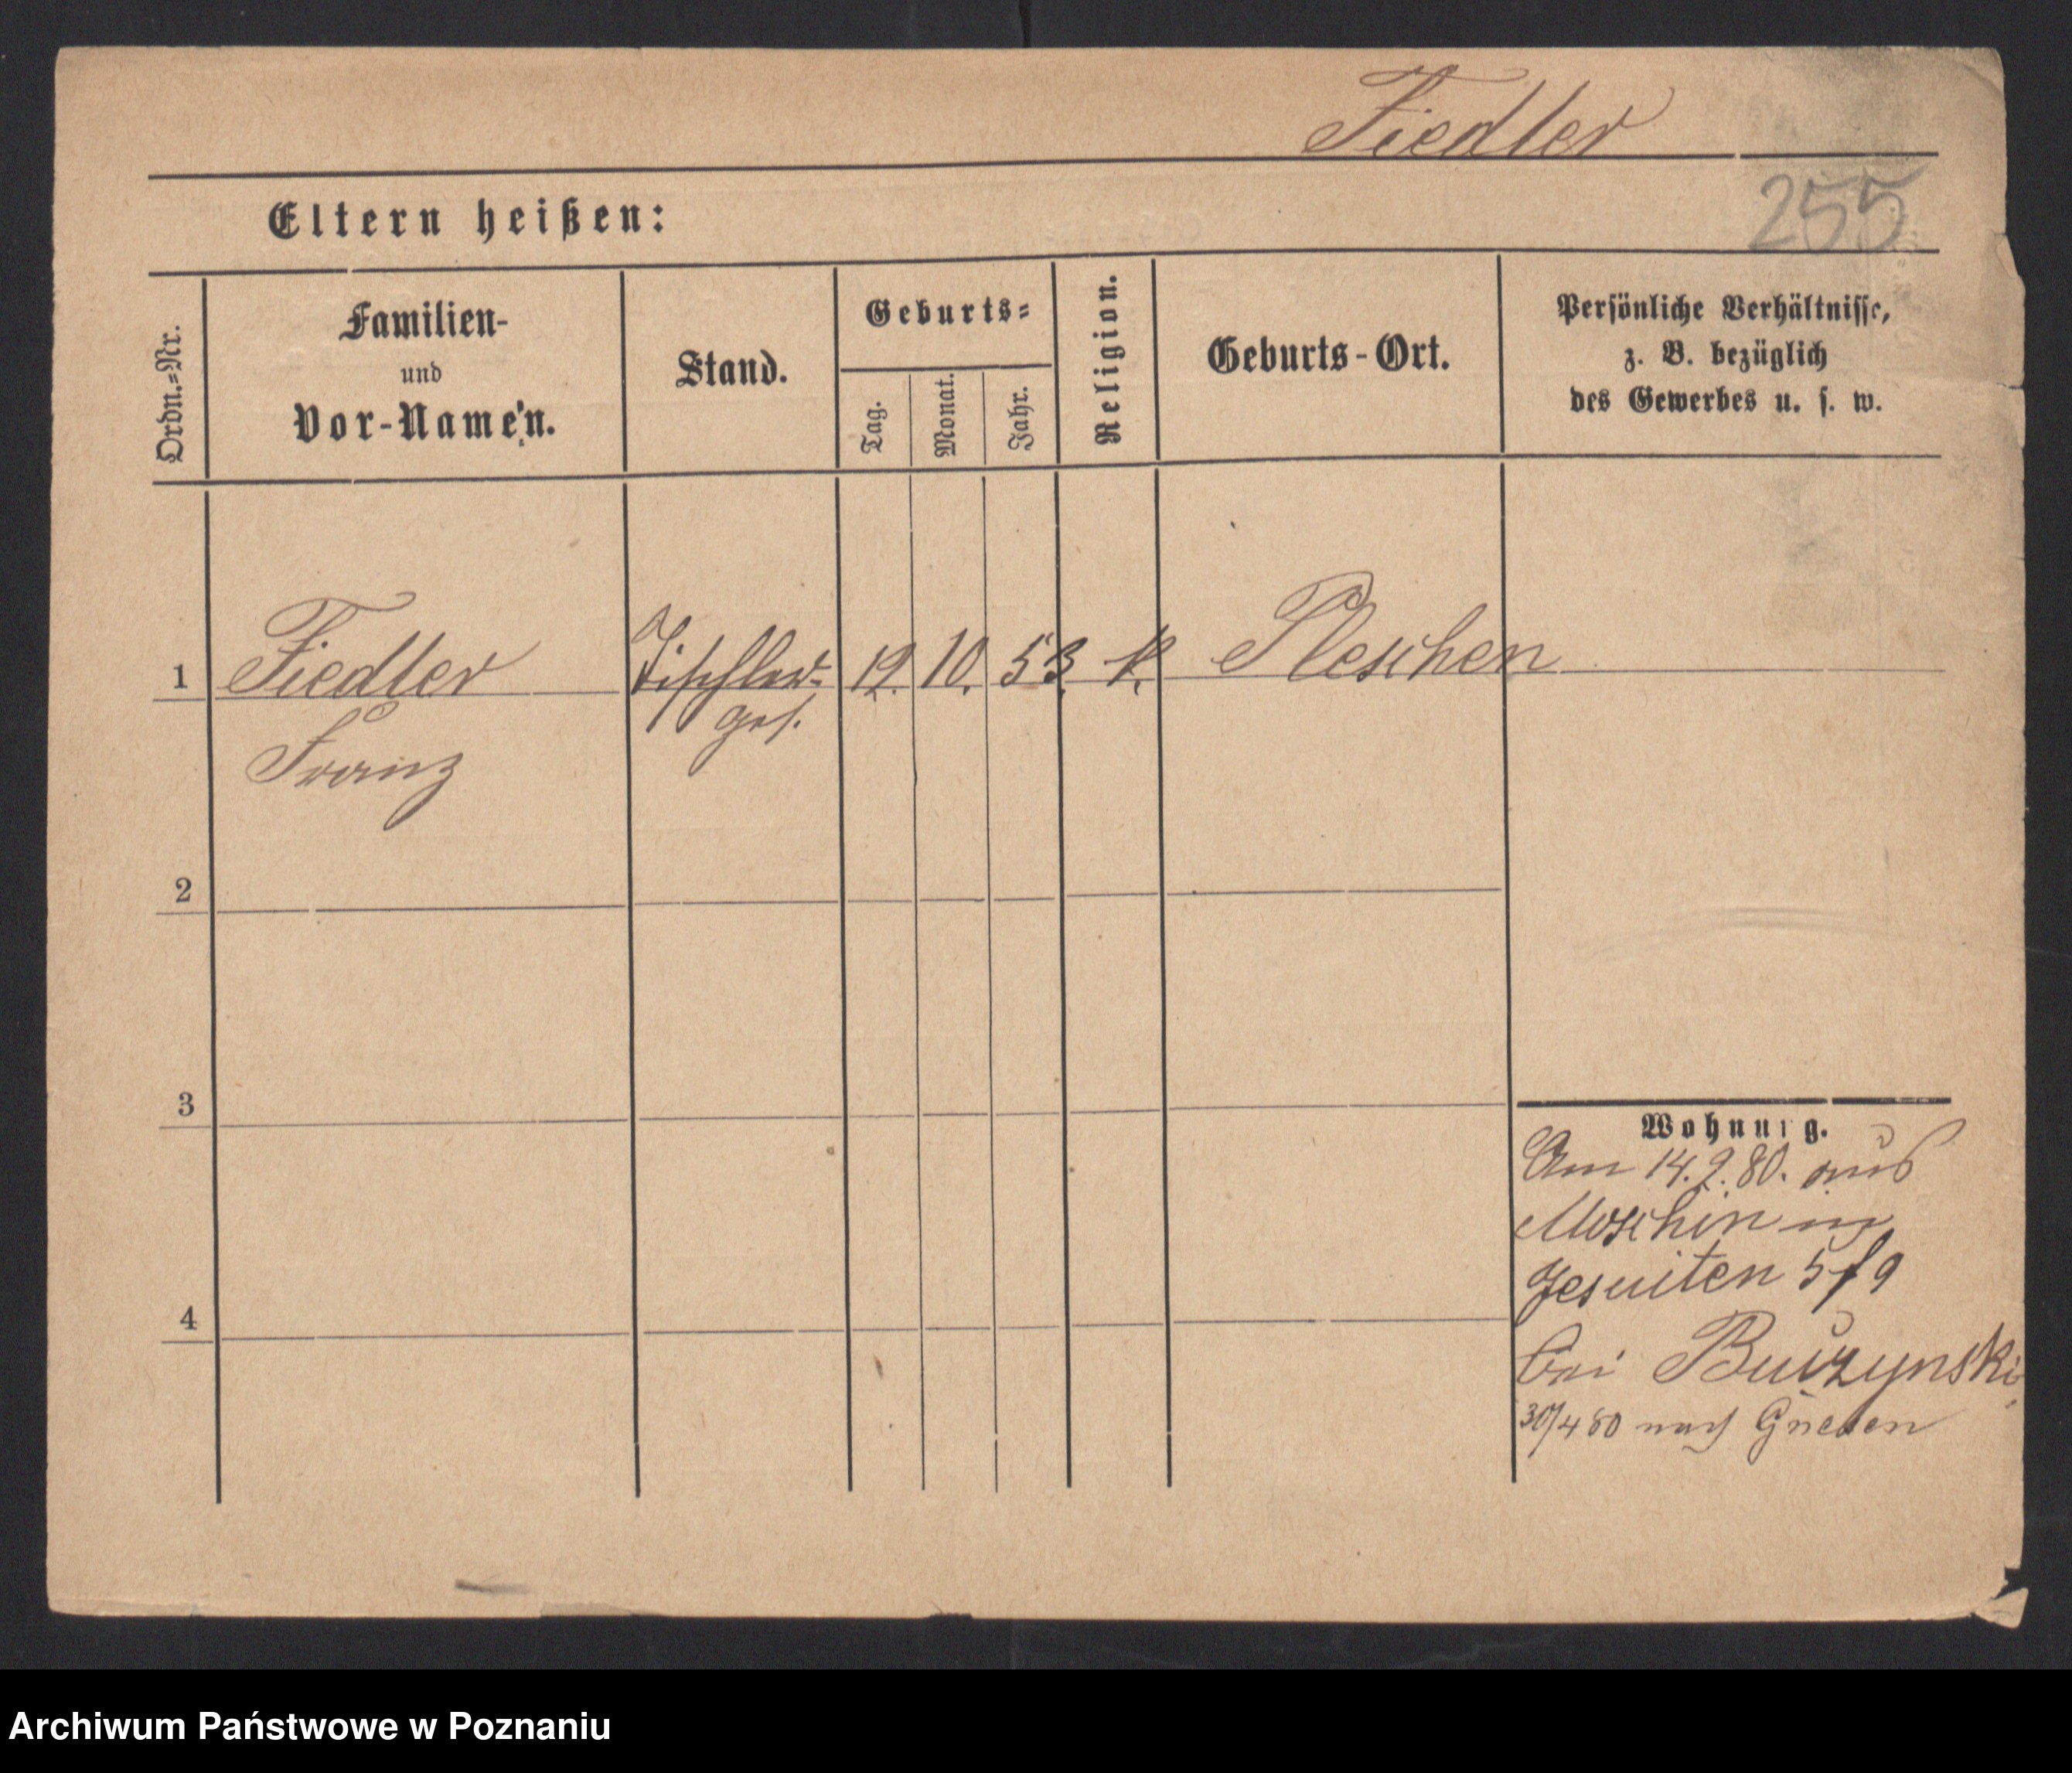 Fiedler
255
Eltern heißen:
Ordn.=Nr.
Familien-
und
Vor-Namen.
Stand.
Geburts=
Tag.
Monat.
Jahr.
Religion.
Geburts-Ort.
Persönliche Verhältnisse,
z. B. bezüglich
des Gewerbes u. s. w.
1 Fiedler Tischler- 10. 53. k. Pleschen
ges.
Franz
2
3
4
Wohnung.
Am 14. 2. 80. aus
Moschin
Jesuiten 5/9
bei
30/4 80 nach
Archiwum Państwowe w Poznaniu